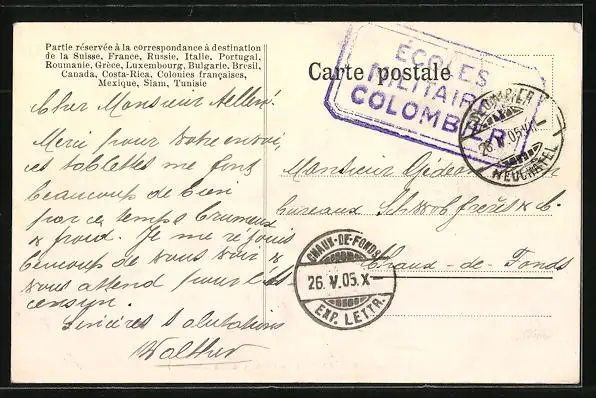 Partie réservée à la correspondance à destination
de la Suisse, France, Russie, Italie, Portugal,
Roumanie, Grèce, Luxembourg, Bulgarie, Brésil,
Canada, Costa-Rica, Colonies françaises,
Mexique, Siam, Tunisie
Cher Monsieur Aellen!
Merci pour votre envoi,
ces tablettes me font
beaucoup de bien
par ce temps brumeux
& froid. Je me réjouis
beaucoup de vous voir &
vous attend pour l'
Sincères Salutations
Walther
Carte postale
ÉCOLES
MILITAIRES
COLOMBIER
COLOMBIER
26.V.05
NEUCHATEL
Monsieur Gédéon
bureaux Schwob frères & C.
Chaux-de-Fonds
CHAUX-DE-FONDS
26.V.05.X-
EXP. LETTR.